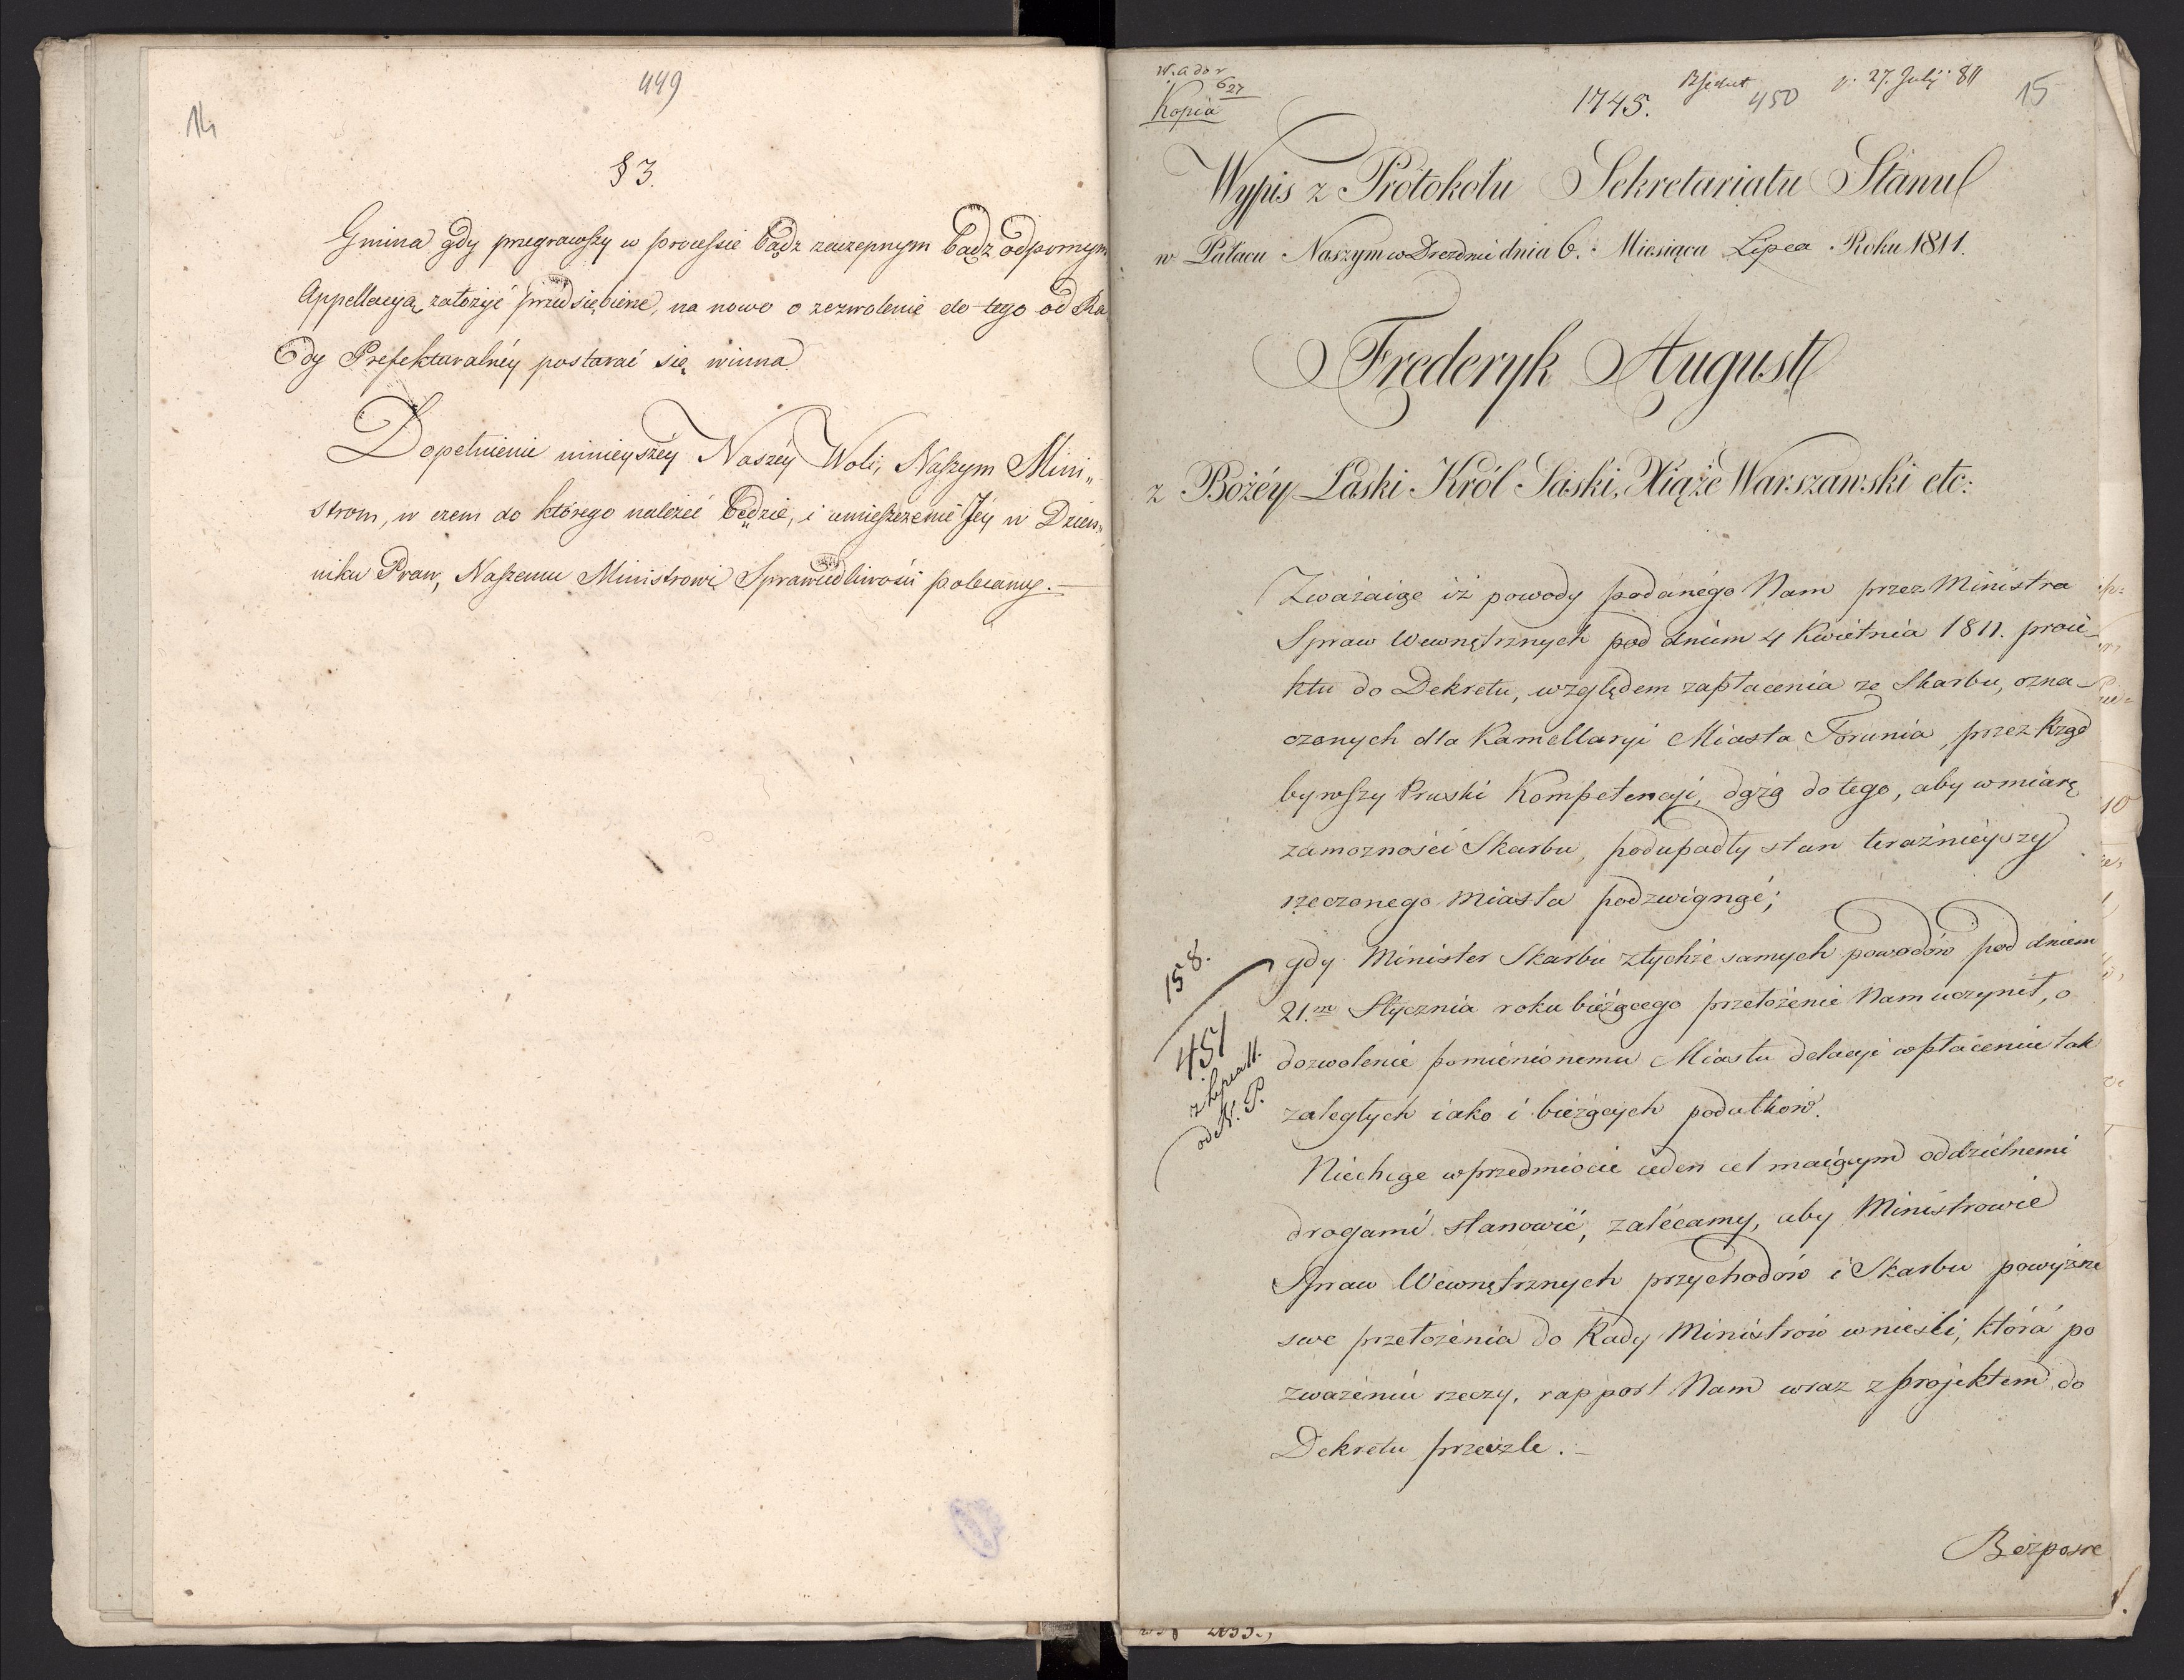 449
14
§ 3.
Gmina gdy przegrawszy w processie bądź zaczepnym bądź odpornym
Appellacyą założyć przedsiębierze, na nowo o zezwolenie do tego od Ra
dy Prefekturalnéy postarać się winna.
Dopełnienie ninieyszéy Naszéy Woli, Naszym Mini„
strom, w czem do którego należeć będzie, i umieszczenie Jéy w Dzien„
niku Praw, Naszemu Ministrowi Sprawiedliwości polecamy. —
627
Kopia
1745.
450
27. July 811
15
Wypis z Protokołu Sekretariatu Stanu
w Pałacu Naszym w Dreźnie dnia 6. Miesiąca Lipca Roku 1811.
Frederyk August
z Bożéy Łaski Król Saski, Xiąże Warszawski etc:
Zważaiąc iż powody podanégo Nam przez Ministra
Spraw Wewnętrznych pod dniem 4 Kwietnia 1811. proie-
ktu do Dekretu, względem zapłacenia ze Skarbu, ozna-
czonych dla Kamellaryi Miasta Torunia, przez Rząd
bywszy Pruski Kompetencyi, dążą do tego, aby w miarę
zamożności Skarbu, podupadły stan teraźnieyszy
rzeczonego Miasta podzwignąć;
gdy Minister Skarbu z tychże samych powodów pod dniem
21.m Stycznia roku bieżącego przełożenie Nam uczynił, o
dozwolenie pomienionemu Miastu delacyi w płaceniu tak
zaległych iako i bieżących podatków.
158.
451
z Lipca 11.
od N. P.
Niechcąc w przedmiocie ieden cel maiącym oddzielnemi
drogami stanowić, zalécamy, aby Ministrowie
Spraw Wewnętrznych przychodów i Skarbu powyższe
swe przełożenia do Rady Ministrów wnieśli, która po
zważeniu rzeczy, rapport Nam wraz z projektem do
Dekretu prześzle. —
Bezpośre